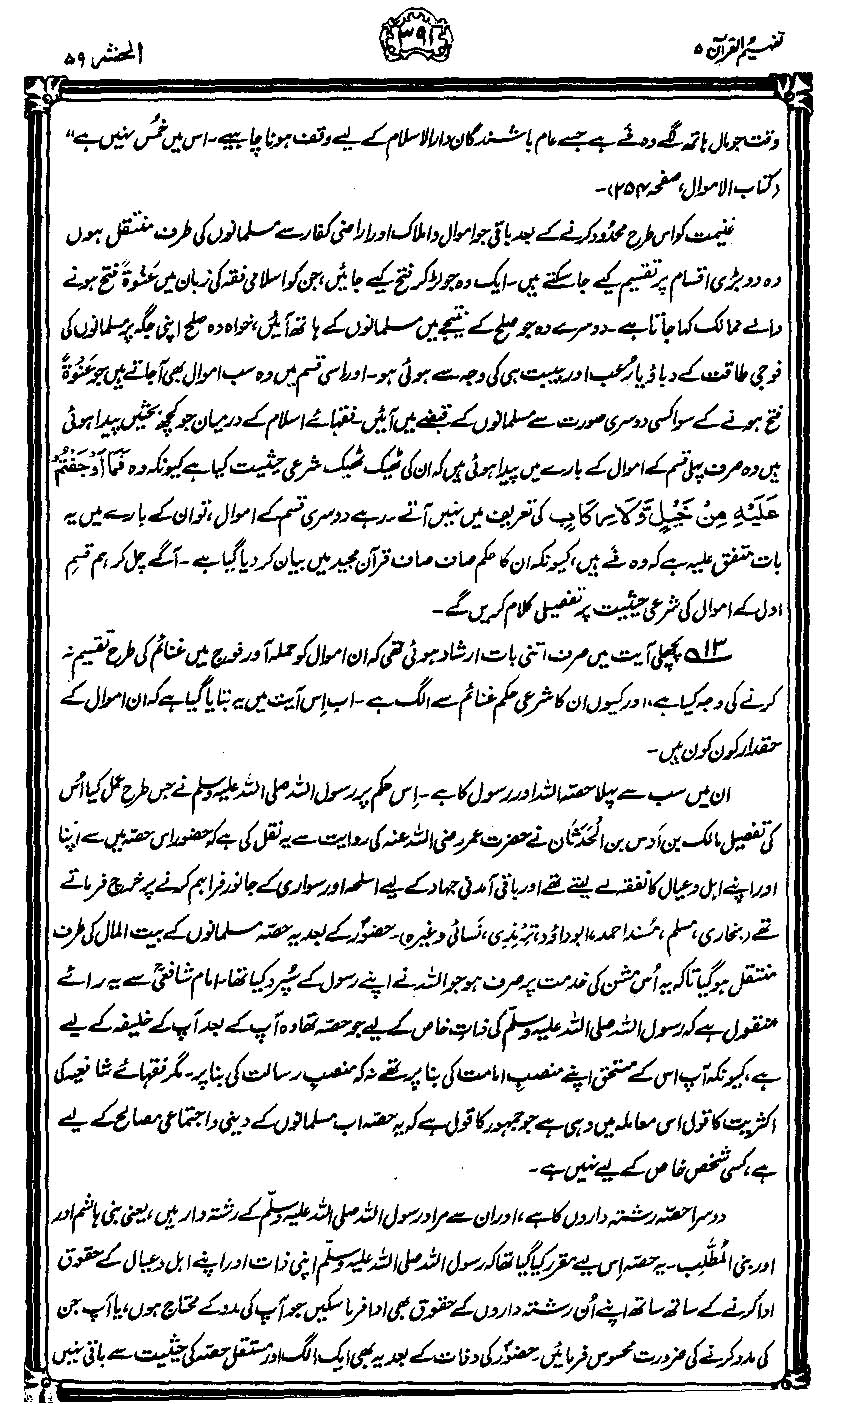 تفہیم القرآن ۵
۳۹۱
الحشر ۵۹
وقت جو مال ہاتھ لگے وہ فَے ہے جسے عام باشندگانِ دارالاسلام کے لیے وقف ہونا چاہیے۔ اس میں خُمس نہیں ہے“
(کتاب الاموال، صفحہ ۲۵۴)۔
غنیمت کو اس طرح محدود کرنے کے بعد باقی جو اموال و املاک اور اراضی کفار سے مسلمانوں کی طرف منتقل ہوں
وہ دو بڑی اقسام پر تقسیم کیے جا سکتے ہیں۔ ایک وہ جو لڑ کر فتح کیے جائیں، جن کو اسلامی فقہ کی زبان میں عَنْوَۃً فتح ہونے
والے ممالک کہا جاتا ہے۔ دوسرے وہ جو صلح کے نتیجے میں مسلمانوں کے ہاتھ آئیں، خواہ وہ صلح اپنی جگہ پر مسلمانوں کی
فوجی طاقت کے دباؤ یا رُعب اور ہیبت ہی کی وجہ سے ہوئی ہو۔ اور اسی قسم میں وہ سب اموال بھی آ جاتے ہیں جو عَنْوَۃً
فتح ہونے کے سوا کسی دوسری صورت سے مسلمانوں کے قبضے میں آئیں۔ فقہائے اسلام کے درمیان جو کچھ بحثیں پیدا ہوئی
ہیں وہ صرف پہلی قسم کے اموال کے بارے میں پیدا ہوئی ہیں کہ ان کی ٹھیک ٹھیک شرعی حیثیت کیا ہے کیونکہ وہ فَمَآ اَوْجَفْتُمْ
عَلَيْهِ مِنْ خَيْلٍ وَّلَا رِكَابٍ کی تعریف میں نہیں آتے۔ رہے دوسری قسم کے اموال، تو ان کے بارے میں یہ
بات متفق علیہ ہے کہ وہ فَے ہیں، کیونکہ ان کا حکم صاف صاف قرآن مجید میں بیان کر دیا گیا ہے۔ آگے چل کر ہم قسمِ
اول کے اموال کی شرعی حیثیت پر تفصیلی کلام کریں گے۔
۱۳ پچھلی آیت میں صرف اتنی بات ارشاد ہوئی تھی کہ ان اموال کو حملہ آور فوج میں غنائم کی طرح تقسیم نہ
کرنے کی وجہ کیا ہے، اور کیوں ان کا شرعی حکم غنائم سے الگ ہے۔ اب اِس آیت میں یہ بتایا گیا ہے کہ ان اموال کے
حقدار کون کون ہیں۔
ان میں سب سے پہلا حصہ اللہ اور رسول کا ہے۔ اِس حکم پر رسول اللہ صلی اللہ علیہ وسلم نے جس طرح عمل کیا اُس
کی تفصیل مالک بن اَوس بن الحَدَثان نے حضرت عمر رضی اللہ عنہ کی روایت سے یہ نقل کی ہے کہ حضورؐ اس حصہ میں سے اپنا
اور اپنے اہل و عیال کا نفقہ لے لیتے تھے اور باقی آمدنی جہاد کے لیے اسلحہ اور سواری کے جانور فراہم کرنے پر خرچ فرماتے
تھے (بخاری، مسلم، مُسند احمد، ابوداؤد، ترمذی، نَسائی وغیرہ)۔ حضورؐ کے بعد یہ حصہ مسلمانوں کے بیت المال کی طرف
منتقل ہو گیا تاکہ یہ اُس مشن کی خدمت پر صرف ہو جو اللہ نے اپنے رسول کے سُپرد کیا تھا۔ امام شافعیؒ سے یہ رائے
منقول ہے کہ رسول اللہ صلی اللہ علیہ وسلّم کی ذاتِ خاص کے لیے جو حصہ تھا وہ آپ کے بعد آپ کے خلیفہ کے لیے
ہے، کیونکہ آپ اس کے مستحق اپنے منصبِ امامت کی بنا پر تھے نہ کہ منصبِ رسالت کی بنا پر۔ مگر فقہائے شافعیہ کی
اکثریت کا قول اس معاملہ میں وہی ہے جو جمہور کا قول ہے کہ یہ حصہ اب مسلمانوں کے دینی و اجتماعی مصالح کے لیے
ہے، کسی شخصِ خاص کے لیے نہیں ہے۔
دوسرا حصہ رشتہ داروں کا ہے، اور ان سے مراد رسول اللہ صلی اللہ علیہ وسلّم کے رشتہ دار ہیں، یعنی بنی ہاشم اور
اور بنی المُطَّلِب۔ یہ حصہ اِس لیے مقرر کیا گیا تھا کہ رسول اللہ صلی اللہ علیہ وسلّم اپنی ذات اور اپنے اہل و عیال کے حقوق
ادا کرنے کے ساتھ ساتھ اپنے اُن رشتہ داروں کے حقوق بھی ادا فرما سکیں جو آپ کی مدد کے محتاج ہوں، یا آپ جن
کی مدد کرنے کی ضرورت محسوس فرمائیں۔ حضورؐ کی وفات کے بعد یہ بھی ایک الگ اور مستقل حصہ کی حیثیت سے باقی نہیں